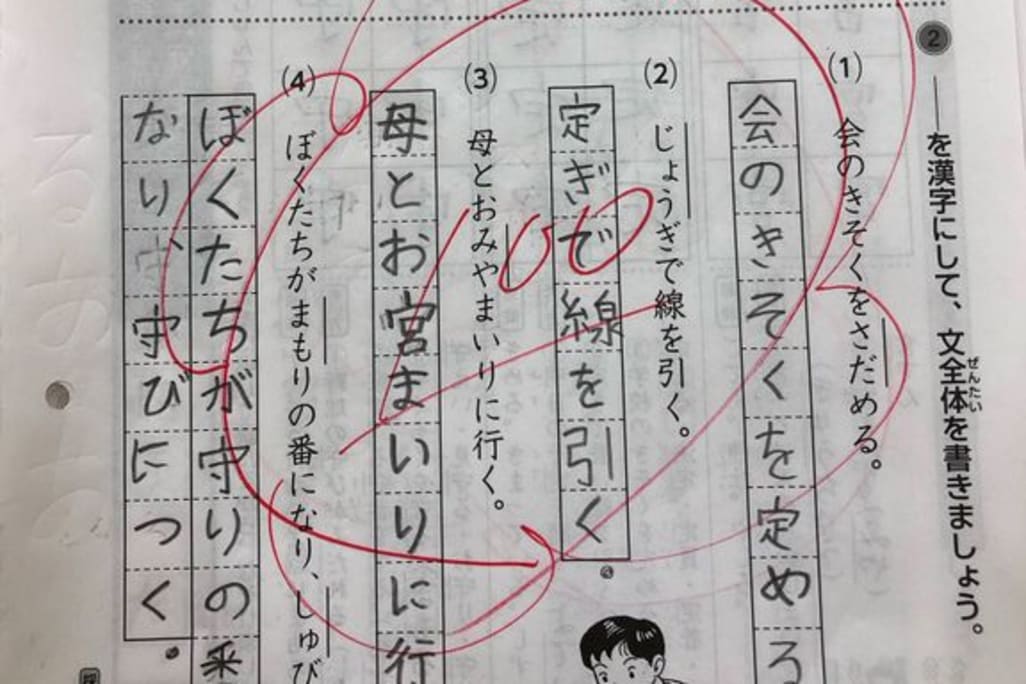 2 ――を漢字にして、文全体を書きましょう。
ぜんたい
(1) 会のきそくをさだめる。
会のきそくを定める
(2) じょうぎで線を引く。
定ぎで線を引く。
(3) 母とおみやまいりに行く。
母とお宮まいりに行
(4) ぼくたちがまもりの番になり、しゅび
ぼくたちが守りの番
なり、守びにつく。
100